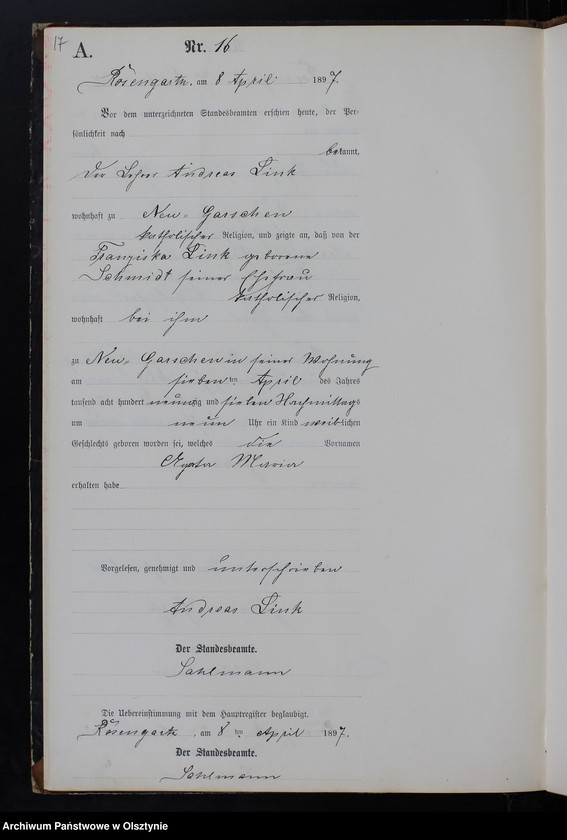 17
A.
Nr. 16
Rosengarth, am 8 April 1897.
Vor dem unterzeichneten Standesbeamten erschien heute, der Per-
sönlichkeit nach
bekannt,
der Lehrer Andreas Link
wohnhaft zu Neu-Garschen
katholischer Religion, und zeigte an, daß von der
Franziska Link geborene
Schmidt seiner Ehefrau
katholischer Religion,
wohnhaft bei ihm
zu Neu-Garschen in seiner Wohnung
am sieben ten April des Jahres
tausend acht hundert neunzig und sieben Nachmittags
um neun Uhr ein Kind weiblichen
Geschlechts geboren worden sei, welches die Vornamen
Agata Maria
erhalten habe
Vorgelesen, genehmigt und unterschrieben
Andreas Link
Der Standesbeamte.
Sahlmann
Die Uebereinstimmung mit dem Hauptregister beglaubigt.
Rosengarth, am 8 ten April 1897.
Der Standesbeamte.
Sahlmann
Archiwum Państwowe w Olsztynie